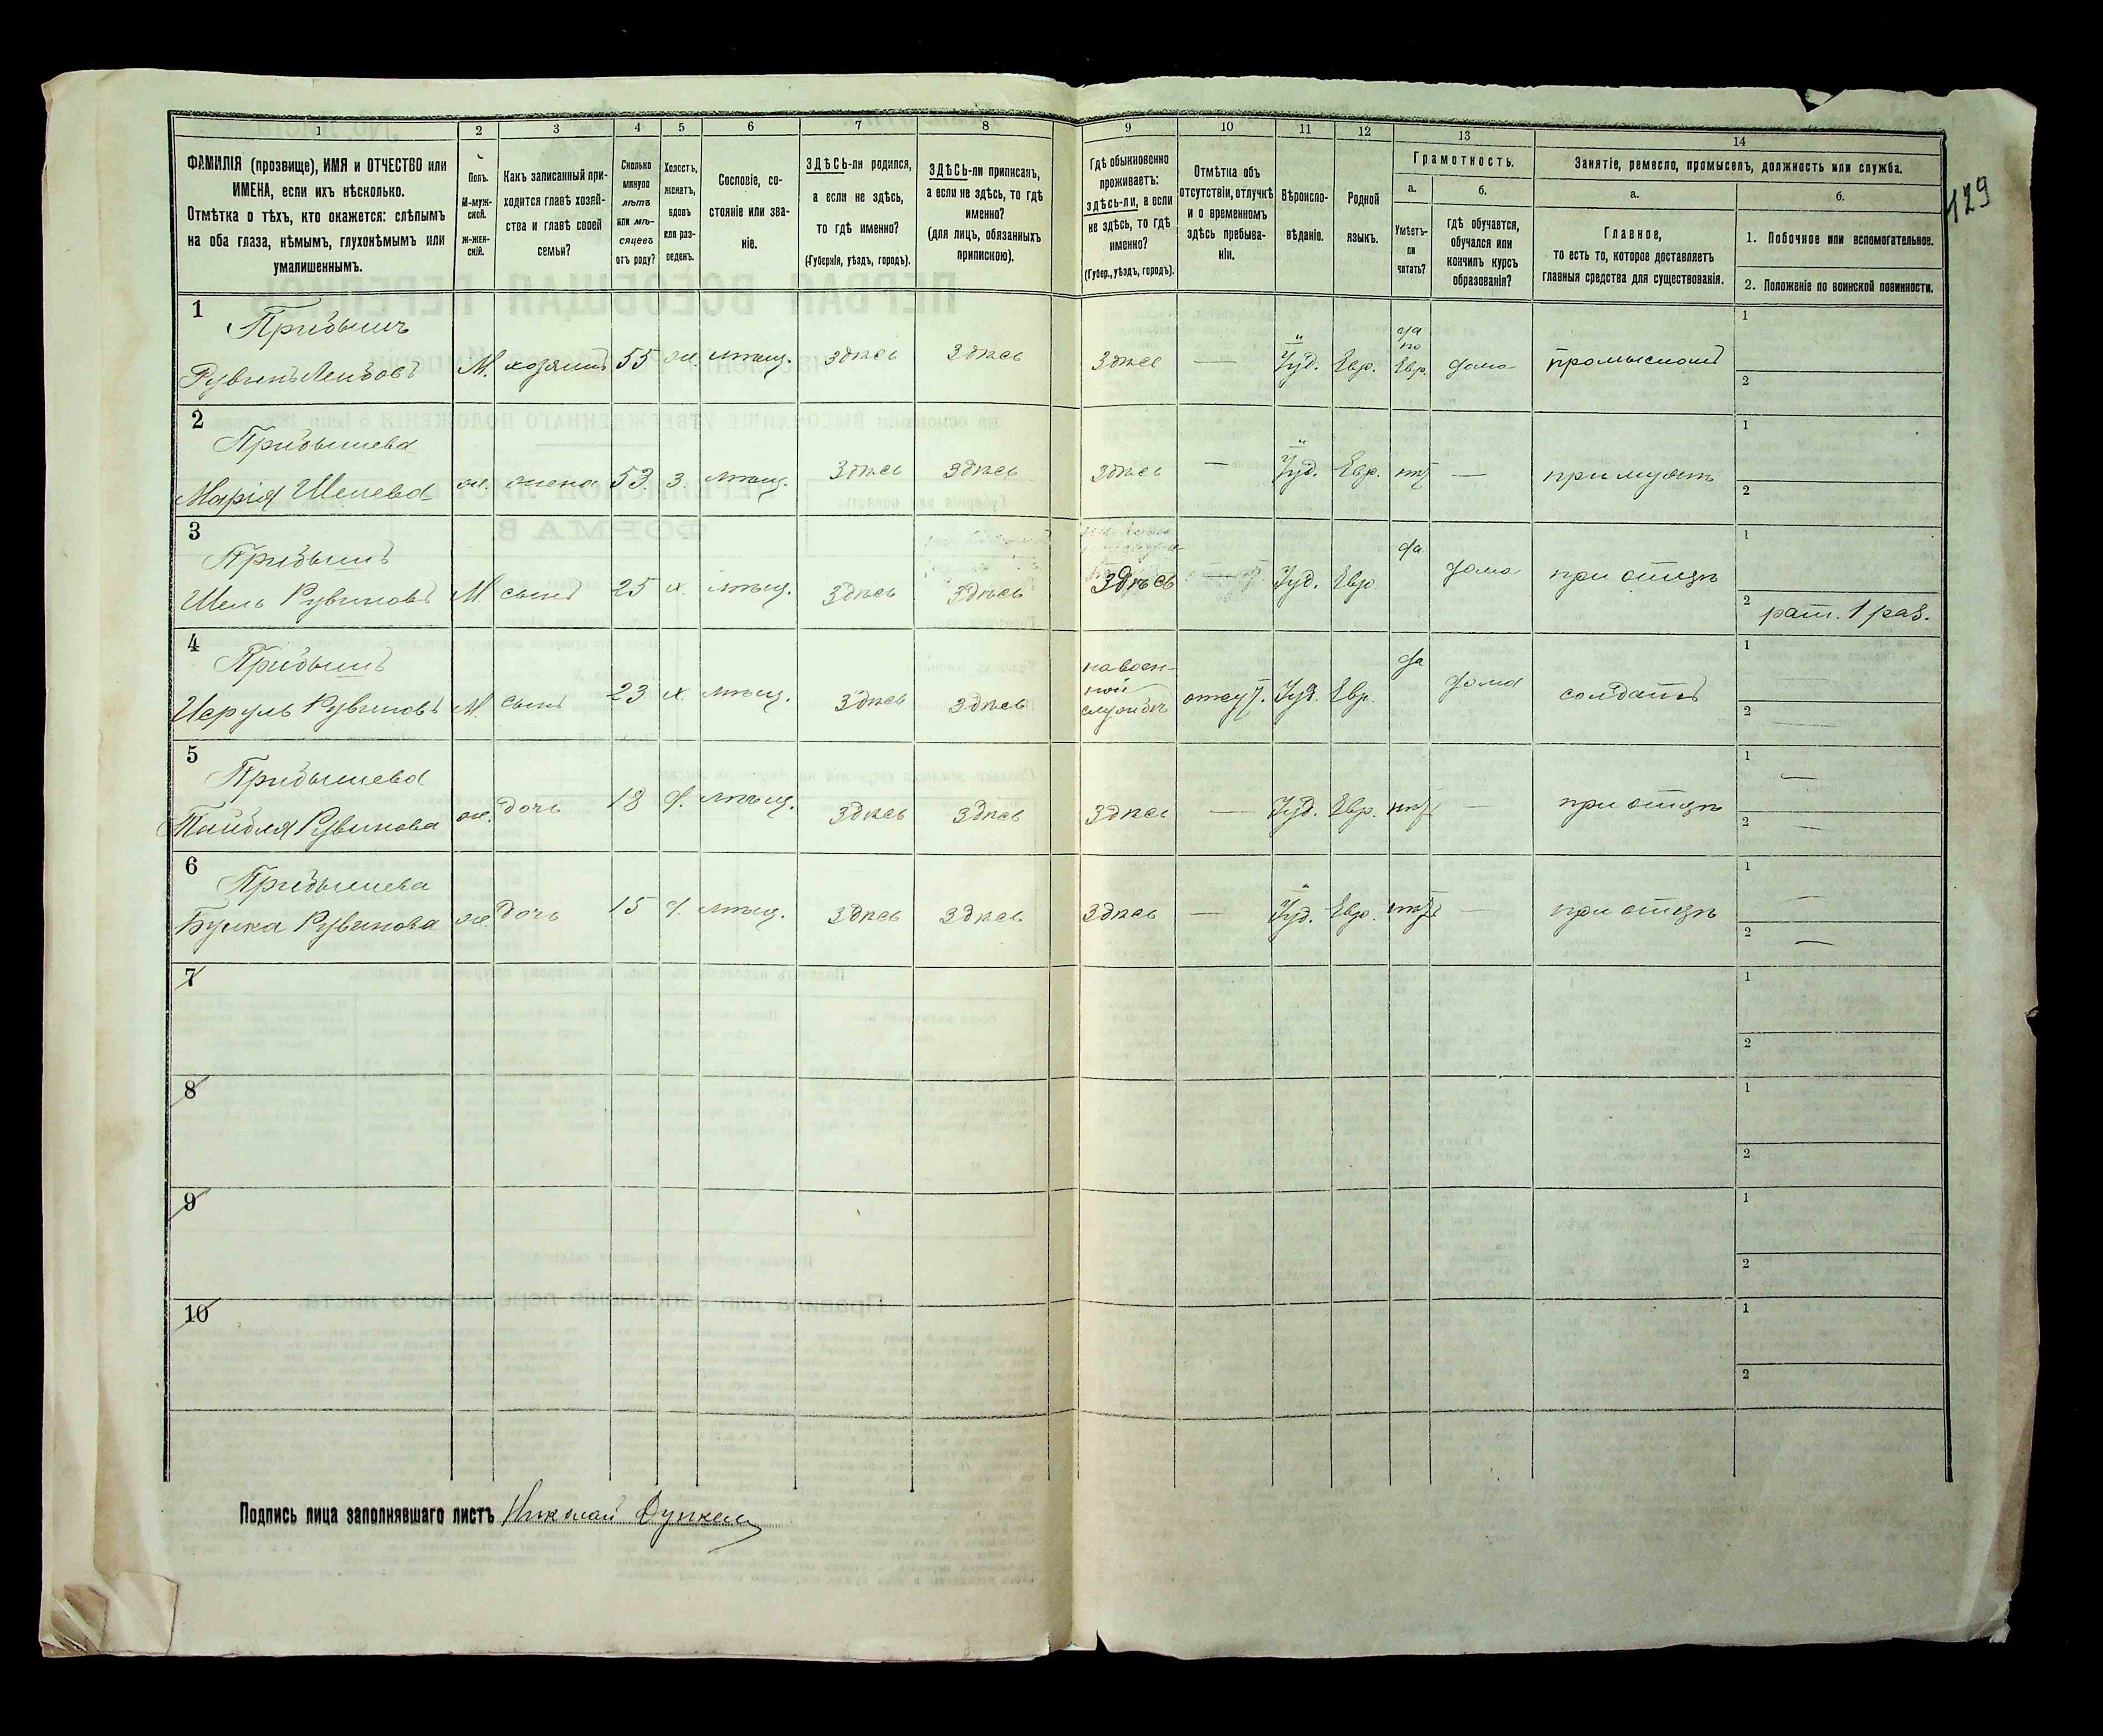 1 2 3 4 5 6 7 8 9 10 11 12 13 14
ФАМИЛІЯ (прозвище), ИМЯ и ОТЧЕСТВО или
ИМЕНА, если ихъ нѣсколько.
Отмѣтка о тѣхъ, кто окажется: слѣпымъ
на оба глаза, нѣмымъ, глухонѣмымъ или
умалишеннымъ.
Полъ.
М-муж-
ской.
Ж-жен-
скій.
Какъ записанный при-
ходится главѣ хозяй-
ства и главѣ своей
семьи?
Сколько
минуло
лѣтъ
или мѣ-
сяцевъ
отъ роду?
Холостъ,
женатъ,
вдовъ
или раз-
веденъ.
Сословіе, со-
стояніе или зва-
ніе.
ЗДѢСЬ-ли родился,
а если не здѣсь,
то гдѣ именно?
(Губернія, уѣздъ, городъ).
ЗДѢСЬ-ли приписанъ,
а если не здѣсь, то гдѣ
именно?
(для лицъ, обязанныхъ
припискою).
Гдѣ обыкновенно
проживаетъ:
здѣсь-ли, а если
не здѣсь, то гдѣ
именно?
(Губер., уѣздъ, городъ).
Отмѣтка объ
отсутствіи, отлучкѣ
и о временномъ
здѣсь пребыва-
ніи.
Вѣроиспо-
вѣданіе.
Родной
языкъ.
Грамотность.
а.
Умѣетъ-
ли
читать?
б.
Гдѣ обучается,
обучался или
кончилъ курсъ
образованія?
Занятіе, ремесло, промыселъ, должность или служба.
а.
Главное,
то есть то, которое доставляетъ
главныя средства для существованія.
б.
1. Побочное или вспомогательное.
2. Положеніе по воинской повинности.
129
1
Прибышъ
Рувинъ Лейбовъ М. хозяинъ 55 ж. мѣщ. здѣсь здѣсь здѣсь — Іуд. Евр. да по Евр. дома промысломъ
1
2
2
Прибышева
Марія Шелева ж. жена 53 з. мѣщ. здѣсь здѣсь здѣсь — Іуд. Евр. нѣтъ — при мужѣ
1
2
3
Прибышъ
Шель Рувиновъ М. сынъ 25 х. мѣщ. здѣсь здѣсь здѣсь Іуд. Евр. да дома при отцѣ
1
2 рат. 1 раз.
4
Прибышъ
Исруль Рувиновъ М. сынъ 23 х. мѣщ. здѣсь здѣсь на воен-
ной
службѣ отсут. Іуд. Евр. да дома солдатъ
1
2
5
Прибышева
Тайбля Рувинова ж. дочь 18 д. мѣщ. здѣсь здѣсь здѣсь — Іуд. Евр. нѣтъ — при отцѣ
1 —
2 —
6
Прибышева
Бунка Рувинова ж. дочь 15 д. мѣщ. здѣсь здѣсь здѣсь — Іуд. Евр. нѣтъ — при отцѣ
1 —
2 —
7
1
2
8
1
2
9
1
2
10
1
2
Подпись лица заполнявшаго листъ Николай